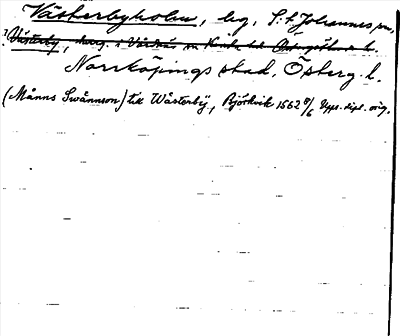 Västerbyholm, lrg, S:t Johannes sn,
Västerby, herrg. i Vårdnäs sn Kinda hd Östergötlands l.
Norrköpings stad, Österg. l.
(Månns Swånnson) till Wåsterbÿ, Björkvik 1562 8/6 Upps. dipl. orig.